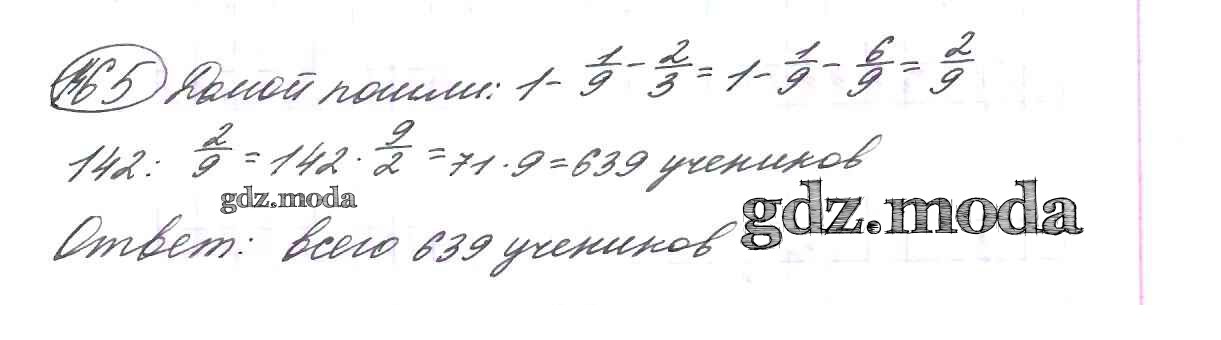 №65 Домой пошли: 1 - 1/9 - 2/3 = 1 - 1/9 - 6/9 = 2/9
142 : 2/9 = 142 · 9/2 = 71 · 9 = 639 учеников
gdz.moda
gdz.moda
Ответ: всего 639 учеников